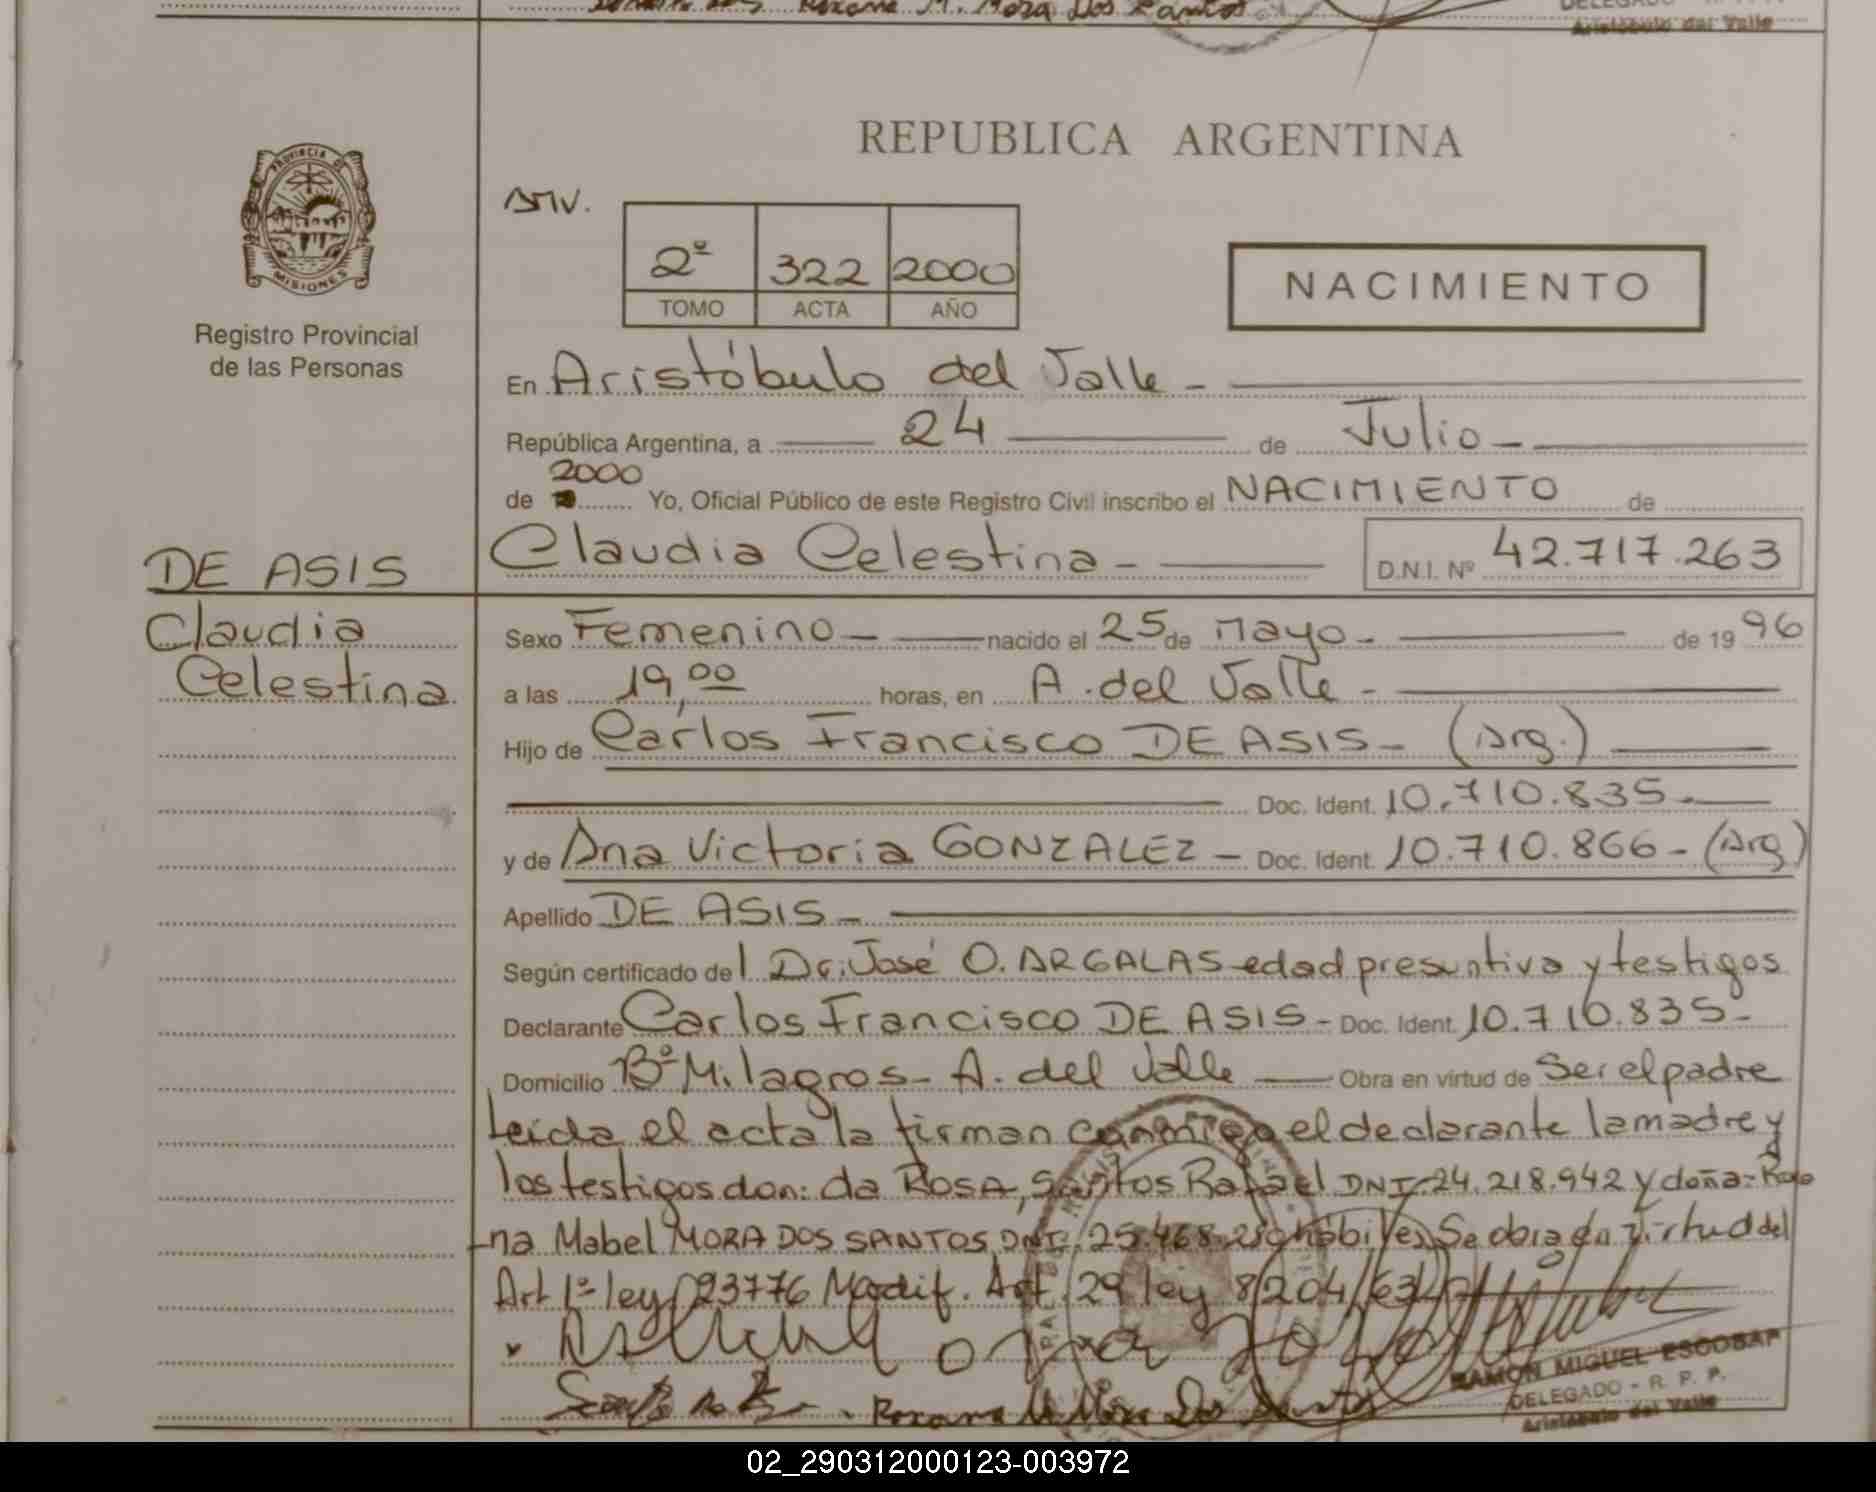 Roxana M. Mora Dos Santos
Aristóbulo del Valle
REPUBLICA ARGENTINA
PROVINCIA DE
MISIONES
Registro Provincial
de las Personas
2º 322 2000
TOMO ACTA AÑO
NACIMIENTO
En Aristóbulo del Valle -
República Argentina, a 24 de Julio -
2000
de Yo, Oficial Público de este Registro Civil inscribo el NACIMIENTO de
DE ASIS Claudia Celestina - D.N.I. Nº 42.717.263
Claudia
Celestina
Sexo Femenino - nacido el 25 de Mayo - de 19 96
a las 19,00 horas, en A. del Valle -
Hijo de Carlos Francisco DE ASIS - (Arg.)
Doc. Ident. 10.710.835 -
y de Ana Victoria GONZALEZ - Doc. Ident. 10.710.866 - (Arg)
Apellido DE ASIS -
Según certificado del Dr. José O. ARGALAS edad presuntiva y testigos
Declarante Carlos Francisco DE ASIS - Doc. Ident. 10.710.835 -
Domicilio Bº Milagros - A. del Valle Obra en virtud de Ser el padre
Leida el acta la firman conmigo el declarante la madre y
los testigos don: da ROSA, Santos Rafael DNI. 24.218.942 y doña - Roxa
-na Mabel MORA DOS SANTOS DNI. 25.468. hábiles Se obra en virtud del
Art 1º ley 23776 Modif. Art. 29 ley 8204/63
RAMON MIGUEL ESCOBAR
DELEGADO - R. P. P.
Aristóbulo del Valle
Roxana M. Mora Dos Santos
02_290312000123-003972